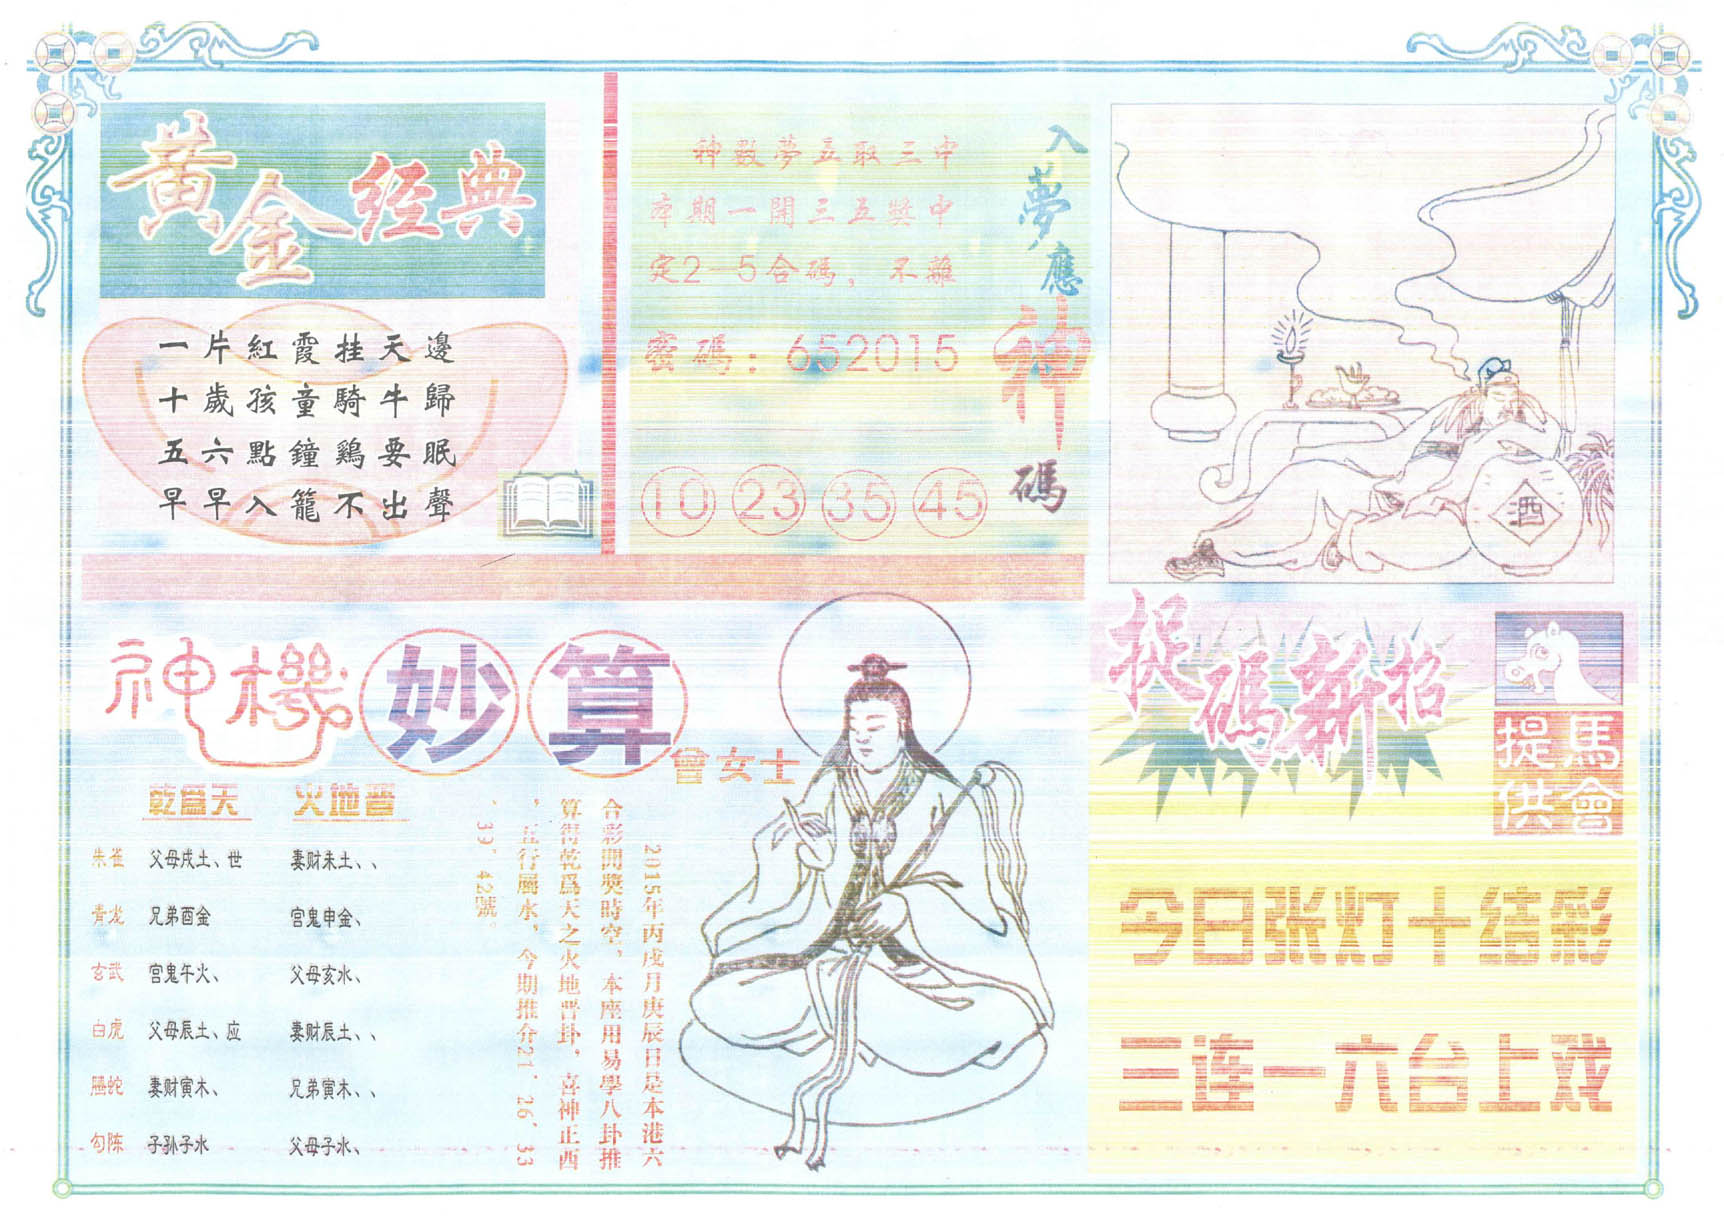 黃金经典
一片紅霞挂天邊
十歲孩童騎牛歸
五六點鐘鷄要眠
早早入籠不出聲
神數夢五取三中
本期一開三五獎中
定2—5合碼，不離
密碼：652015
10 23 35 45
入夢應神碼
酒
神機妙算
曾女士
乾爲天 火地晋
朱雀 父母戌土、世 妻财未土、、
青龙 兄弟酉金 官鬼申金、
玄武 官鬼午火、 父母亥水、
白虎 父母辰土、应 妻财辰土、、
螣蛇 妻财寅木、 兄弟寅木、、
勾陈 子孙子水 父母子水、
2015年丙戌月庚辰日是本港六
合彩開獎時空，本座用易學八卦推
算得乾爲天之火地晋卦，喜神正西
，五行屬水，今期推介21、26、33
、39、42號。
捉碼新招
馬會
提供
今日张灯十结彩
三连一六台上戏